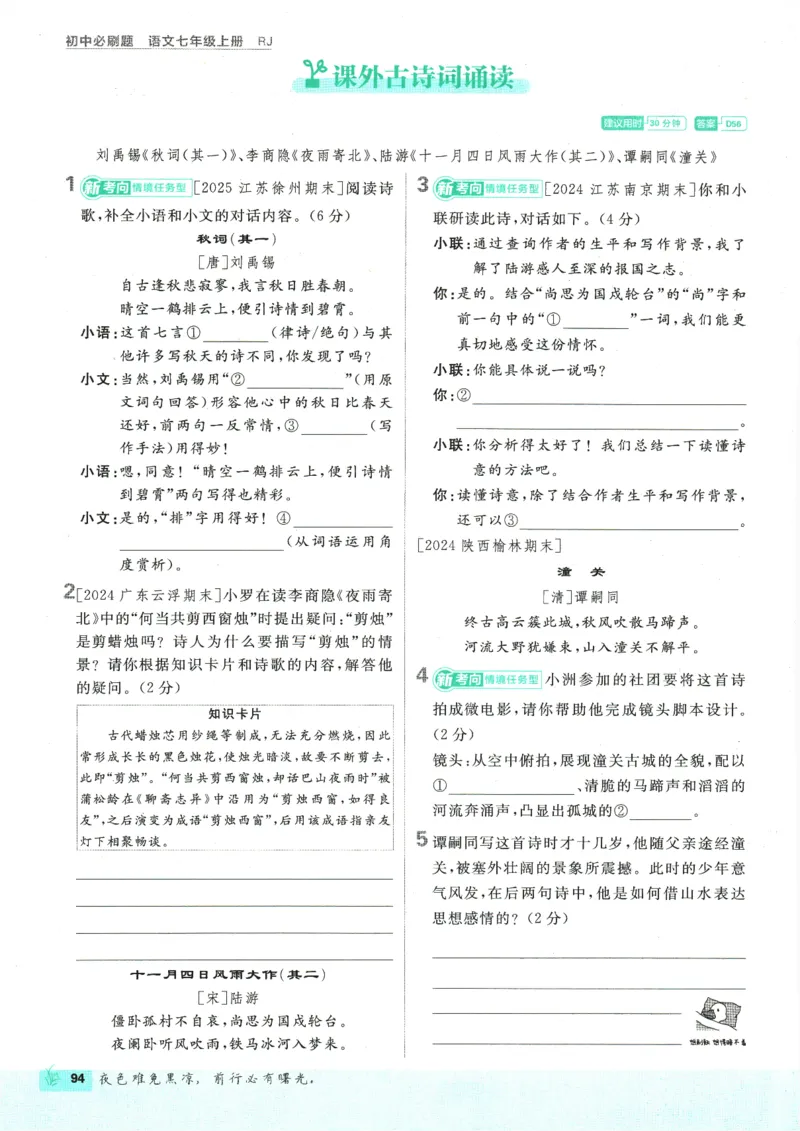 初中必刷题 语文七年级上册 RJ
课外古诗词诵读
建议用时 30分钟 答案 D56
刘禹锡《秋词(其一)》、李商隐《夜雨寄北》、陆游《十一月四日风雨大作(其二)》、谭嗣同《潼关》
1 新考向 情境任务型 [2025江苏徐州期末]阅读诗
歌,补全小语和小文的对话内容。(6分)
秋词(其一)
[唐]刘禹锡
自古逢秋悲寂寥,我言秋日胜春朝。
晴空一鹤排云上,便引诗情到碧霄。
小语:这首七言①________(律诗/绝句)与其
他许多写秋天的诗不同,你发现了吗?
小文:当然,刘禹锡用“②____________”(用原
文词句回答)形容他心中的秋日比春天
还好,前两句一反常情,③________(写
作手法)用得妙!
小语:嗯,同意!“晴空一鹤排云上,便引诗情
到碧霄”两句写得也精彩。
小文:是的,“排”字用得好!④____________
____________________(从词语运用角
度赏析)。
2 [2024广东云浮期末]小罗在读李商隐《夜雨寄
北》中的“何当共剪西窗烛”时提出疑问:“剪烛”
是剪蜡烛吗?诗人为什么要描写“剪烛”的情
景?请你根据知识卡片和诗歌的内容,解答他
的疑问。(2分)
知识卡片
古代蜡烛芯用纱绳等制成,无法充分燃烧,因此
常形成长长的黑色烛花,使烛光暗淡,故要不断剪去,
此即“剪烛”。“何当共剪西窗烛,却话巴山夜雨时”被
蒲松龄在《聊斋志异》中沿用为“剪烛西窗,如得良
友”,之后演变为成语“剪烛西窗”,后用该成语指亲友
灯下相聚畅谈。
十一月四日风雨大作(其二)
[宋]陆游
僵卧孤村不自哀,尚思为国戍轮台。
夜阑卧听风吹雨,铁马冰河入梦来。
3 新考向 情境任务型 [2024江苏南京期末]你和小
联研读此诗,对话如下。(4分)
小联:通过查询作者的生平和写作背景,我了
解了陆游感人至深的报国之志。
你:是的。结合“尚思为国戍轮台”的“尚”字和
前一句中的“①________”一词,我们能更
真切地感受这份情怀。
小联:你能具体说一说吗?
你:②________________________________
____________________________________。
小联:你分析得太好了!我们总结一下读懂诗
意的方法吧。
你:读懂诗意,除了结合作者生平和写作背景,
还可以③__________________________。
[2024陕西榆林期末]
潼 关
[清]谭嗣同
终古高云簇此城,秋风吹散马蹄声。
河流大野犹嫌束,山入潼关不解平。
4 新考向 情境任务型 小洲参加的社团要将这首诗
拍成微电影,请你帮助他完成镜头脚本设计。
(2分)
镜头:从空中俯拍,展现潼关古城的全貌,配以
①________________、清脆的马蹄声和滔滔的
河流奔涌声,凸显出孤城的②________。
5 谭嗣同写这首诗时才十几岁,他随父亲途经潼
关,被塞外壮阔的景象所震撼。此时的少年意
气风发,在后两句诗中,他是如何借山水表达
思想感情的?(2分)
94 夜色难免黑凉,前行必有曙光。